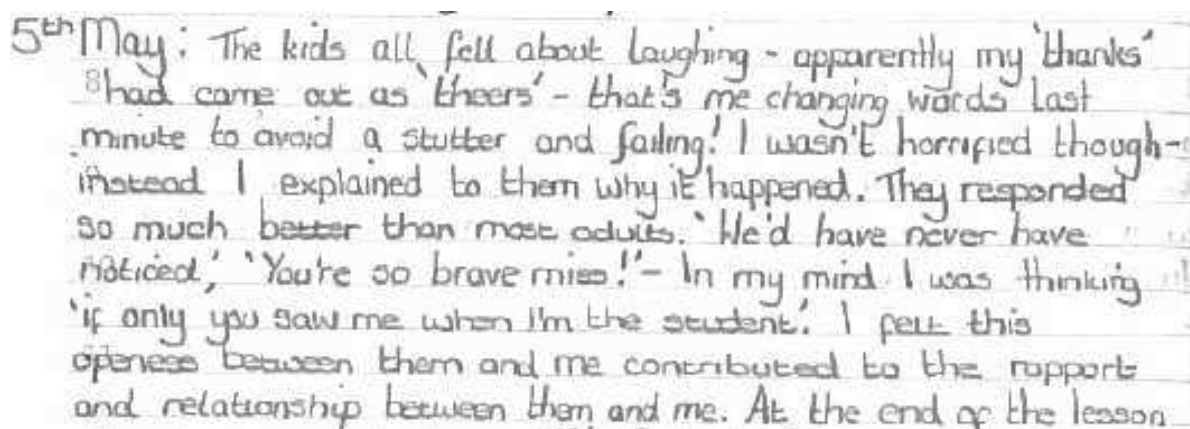 5th May: The kids all fell about laughing - apparently my 'thanks'
had come out as 'theers' - that's me changing words last
minute to avoid a stutter and failing! I wasn't horrified though-
instead I explained to them why it happened. They responded
so much better than most adults. 'We'd have never have
noticed', 'You're so brave miss!' - In my mind I was thinking
'if only you saw me when I'm the student'. I felt this
openess between them and me contributed to the rapport
and relationship between them and me. At the end of the lesson